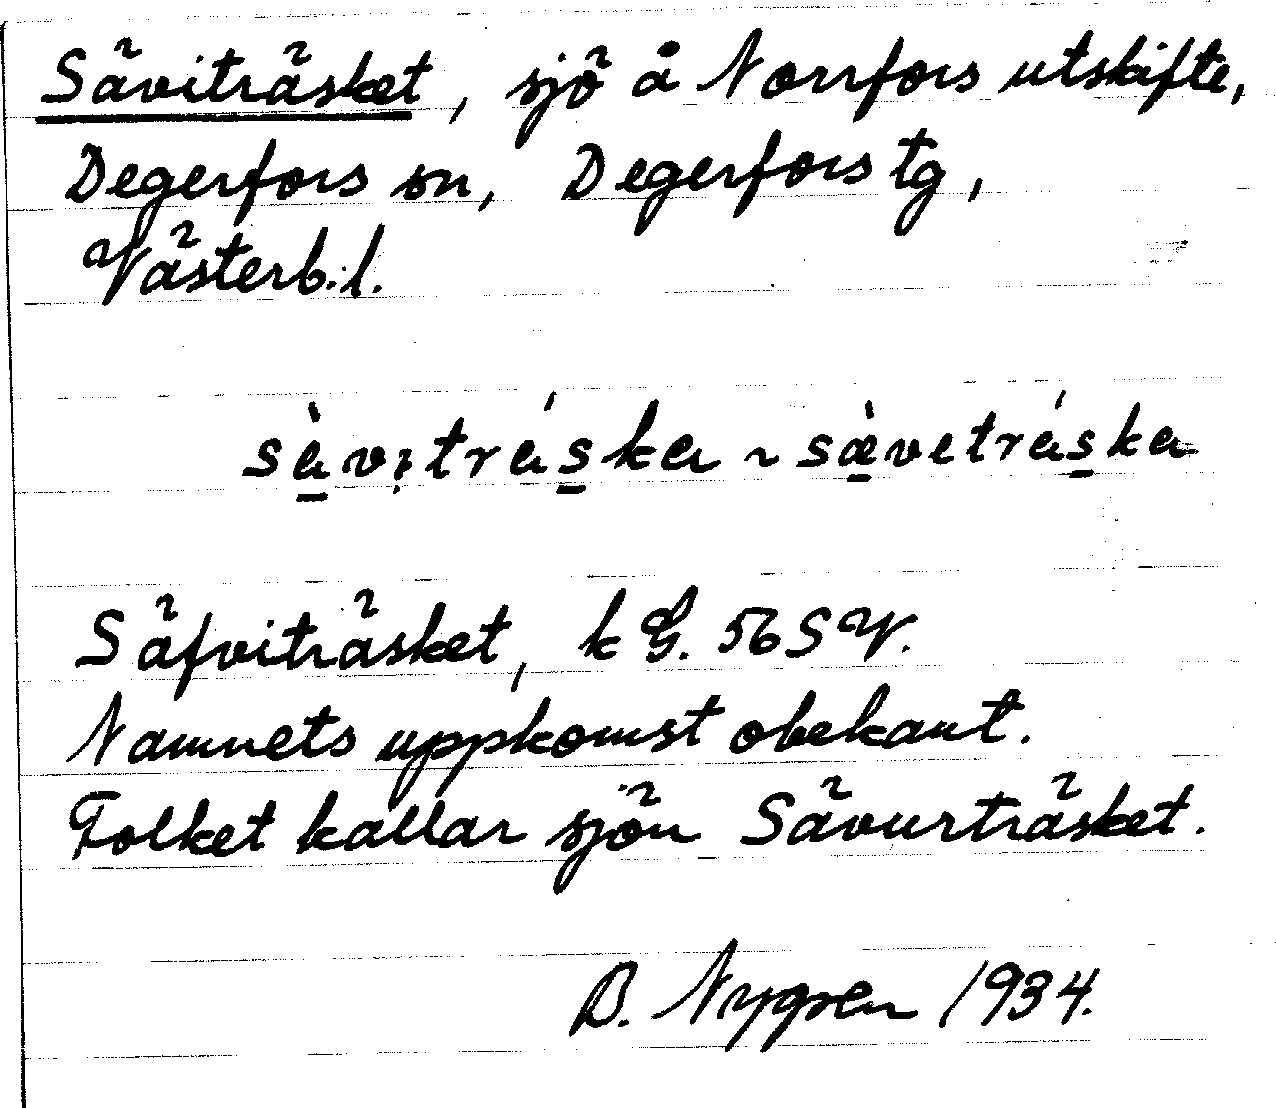 Säviträsket, sjö å Norrfors utskifte,
Degerfors sn, Degerfors tg,
Västerb. l.
sàvitráska ~ sæ̀vetráska
Säfviträsket, k G. 56 SV.
Namnets uppkomst obekant.
Folket kallar sjön Sävurträsket.
B. Nygren 1934.